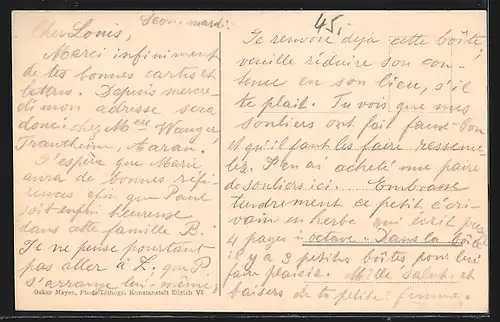 Cher Louis, Saon. mardi.
Merci infiniment
de tes bonnes cartes et
lettres. Depuis mercre-
di mon adresse sera
donc: chez Mme Wanger,
Aarau.
J'espère que Marie
aura de bonnes réfé-
rences afin que Paul
soit enfin heureuse
dans cette famille B.
Je ne pense pourtant
pas aller à Z., que P.
s'arrange lui-même,
Oskar Mayer, Photo-Lithogr. Kunstanstalt Zürich VI
45.
Je renvoie déjà cette boîte,
veuille réduire son con-
tenu en son lieu, s'il
te plaît. Tu vois que mes
souliers ont fait faux-bon
et qu'il faut les faire resseme-
ler. J'en ai acheté une paire
de souliers ici. Embrasse
tendrement ce petit écri-
vain en herbe qui écrit
4 pages: octave. Dans la boîte
il y a 3 petites boîtes pour lui
faire plaisir. Mille saluts et
baisers de ta petite femme.